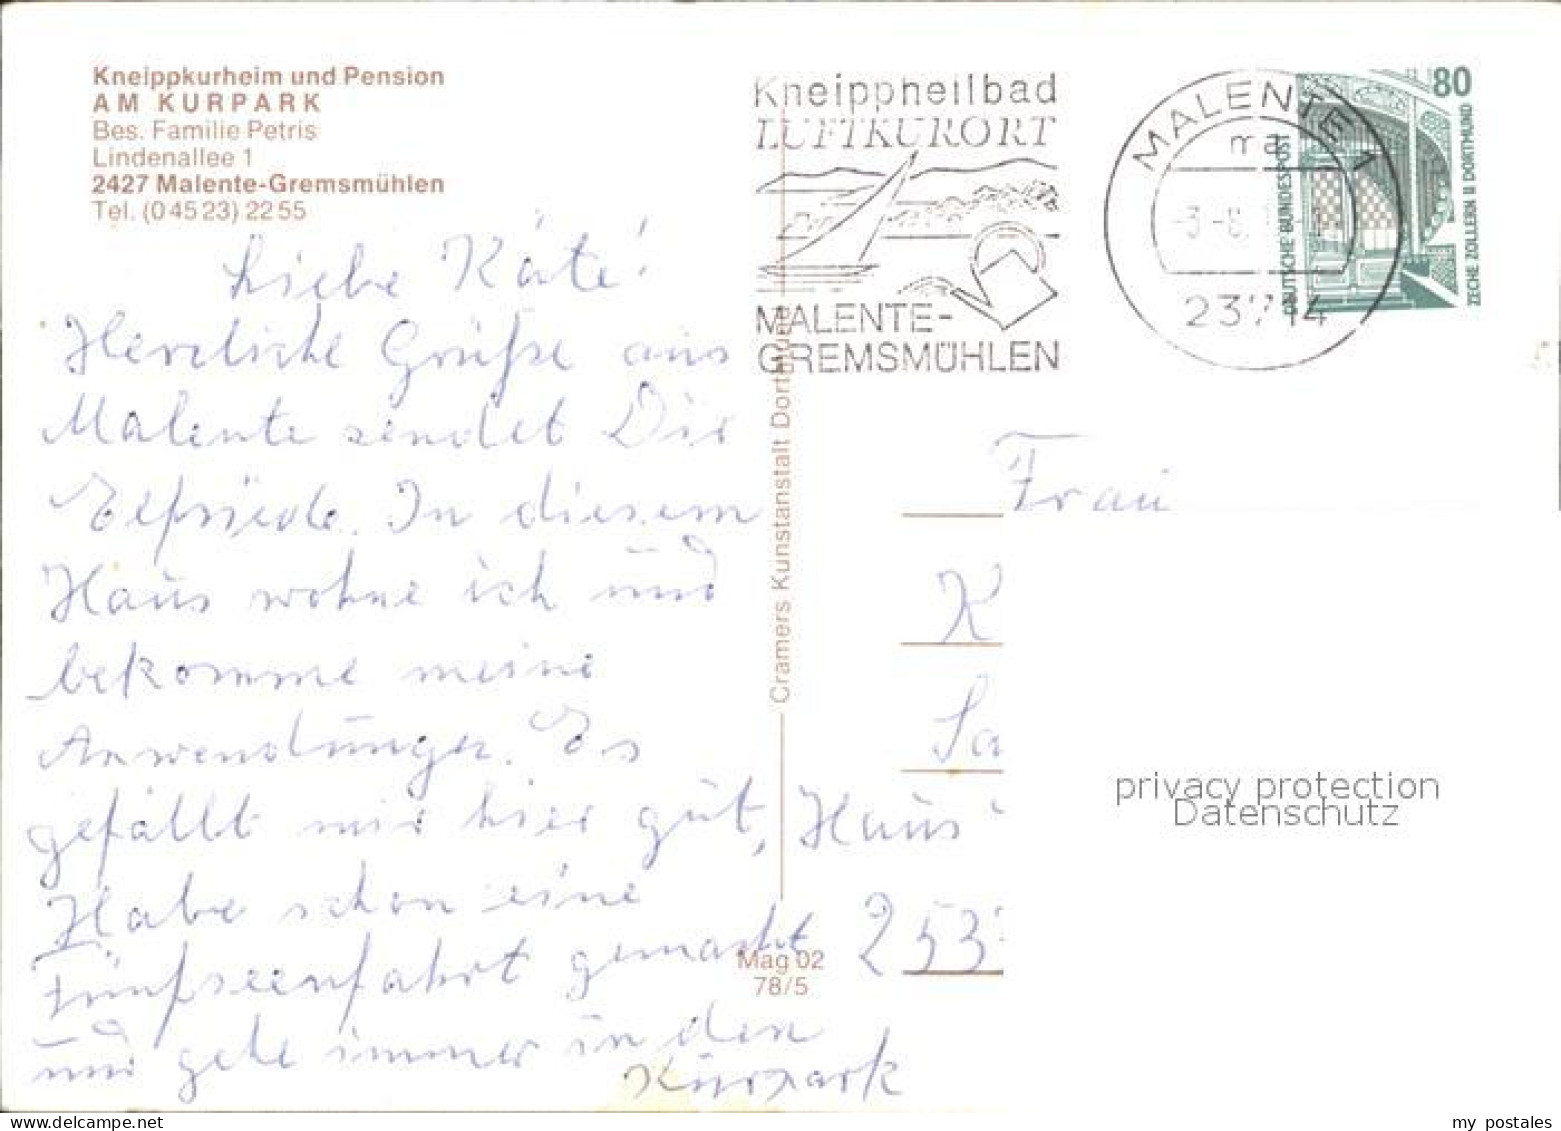 Kneippkurheim und Pension
AM KURPARK
Bes. Familie Petris
Lindenallee 1
2427 Malente-Gremsmühlen
Tel. (0 45 23) 22 55
Kneippheilbad
LUFTKURORT
MALENTE-
GREMSMÜHLEN
MALENTE 1
ma
-3.-8.
23714
80
DEUTSCHE BUNDESPOST
ZECHE ZOLLERN II DORTMUND
Liebe Käte!
Herzliche Grüße aus
Malente sendet Dir
Elfriede. In diesem
Haus wohne ich und
bekomme meine
Anwendungen. Es
gefällt mir hier gut,
Habe schon eine
Fünfseenfahrt gemacht
und gehe immer in den
Kurpark
Cramers Kunstanstalt Dortmund
Mag 02
78/5
Frau
K
Sa
Haus
253
privacy protection
Datenschutz
my postales